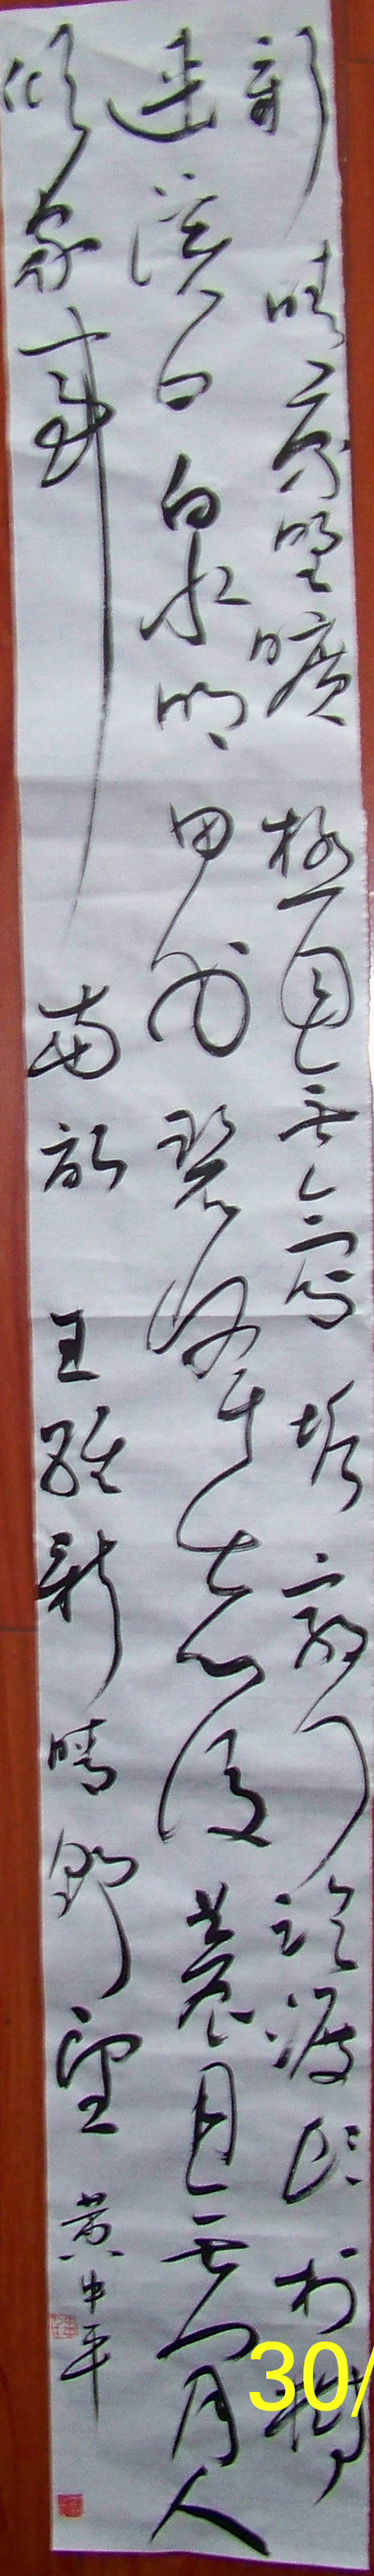 新晴原野旷极目无氛垢郭门临渡头村树
连溪口白水明田外碧峰出山后农月无闲人
倾家事南畝王维新晴野望黄中平
30/